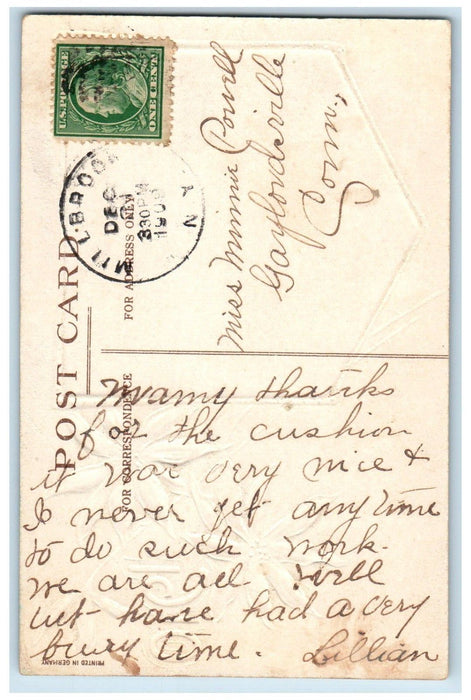 U.S. POSTAGE
ONE CENT
MILLBROOK
DEC
330PM
N
POST CARD
FOR ADDRESS ONLY
FOR CORRESPONDENCE
Miss Minnie Powell
Gaylordsville
Conn,
Mamy thanks
for the cushion
it was very nice &
I never get any time
to do such work.
we are all well
but have had a very
busy time. Lillian
PRINTED IN GERMANY